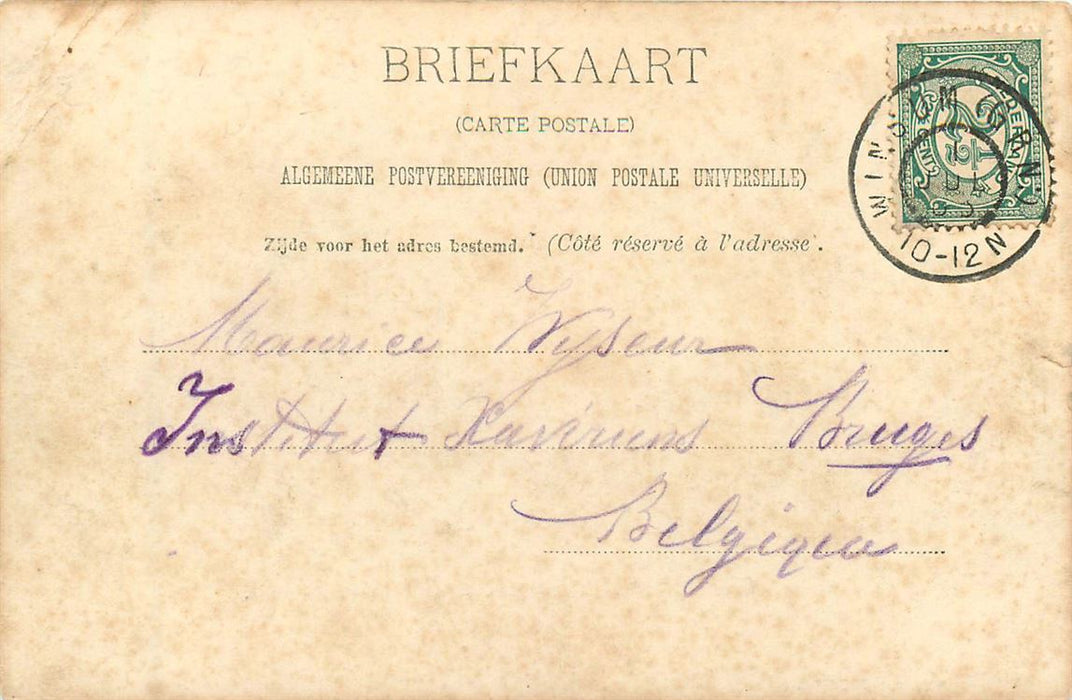 BRIEFKAART
(CARTE POSTALE)
ALGEMEENE POSTVEREENIGING (UNION POSTALE UNIVERSELLE)
Zijde voor het adres bestemd. (Côté réservé à l'adresse.
WINSUM (GRN.)
10-12N
2½
CENT
Maurice Wyseur
Institut Xavériens Bruges
Belgique